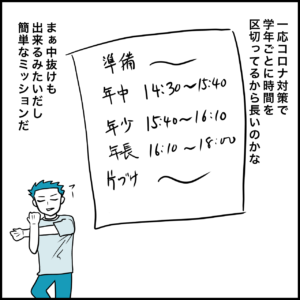 一応コロナ対策で
学年ごとに時間を
区切ってるから長いのかな
準備 〜
年中 14:30〜15:40
年少 15:40〜16:10
年長 16:10〜18:00
片づけ 〜
まぁ中抜けも
出来るみたいだし
簡単なミッションだ